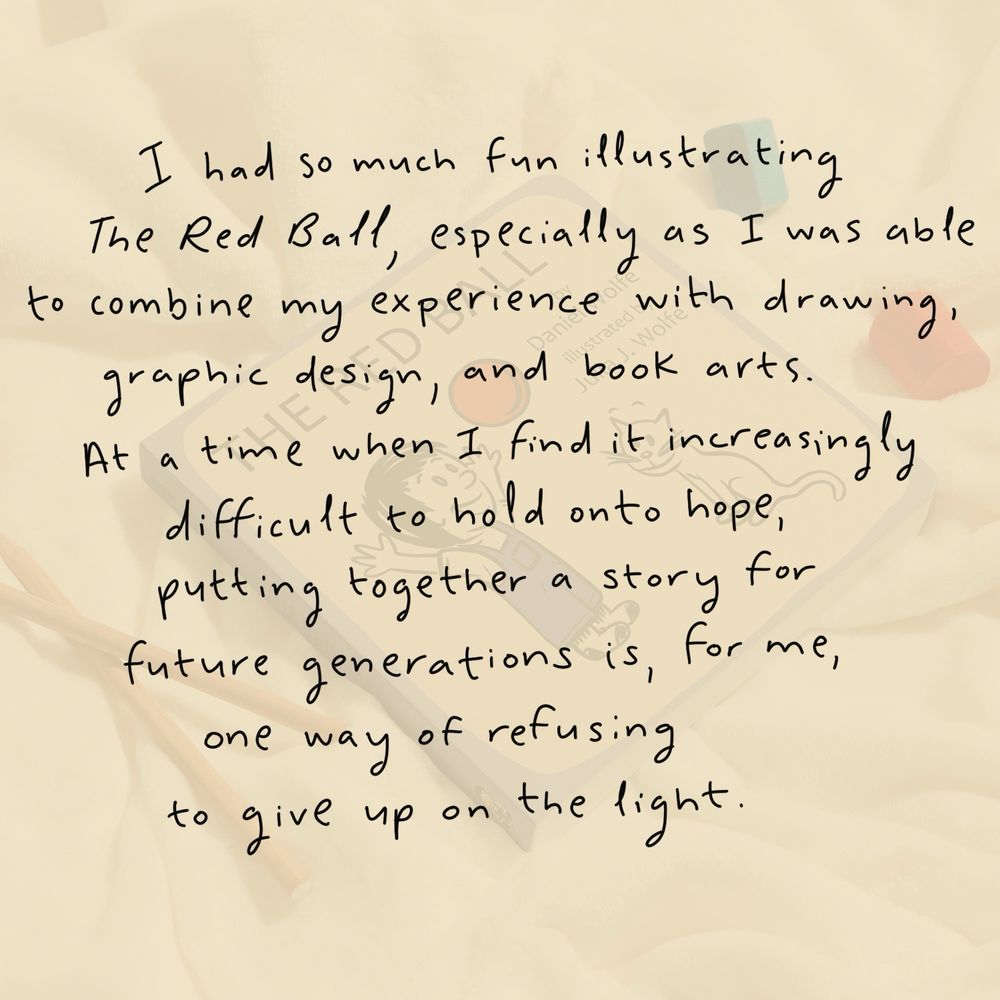 I had so much fun illustrating
The Red Ball, especially as I was able
to combine my experience with drawing,
graphic design, and book arts.
At a time when I find it increasingly
difficult to hold onto hope,
putting together a story for
future generations is, for me,
one way of refusing
to give up on the light.
THE RED BALL
by
Daniel Wolfe
illustrated by
J. Wolfe